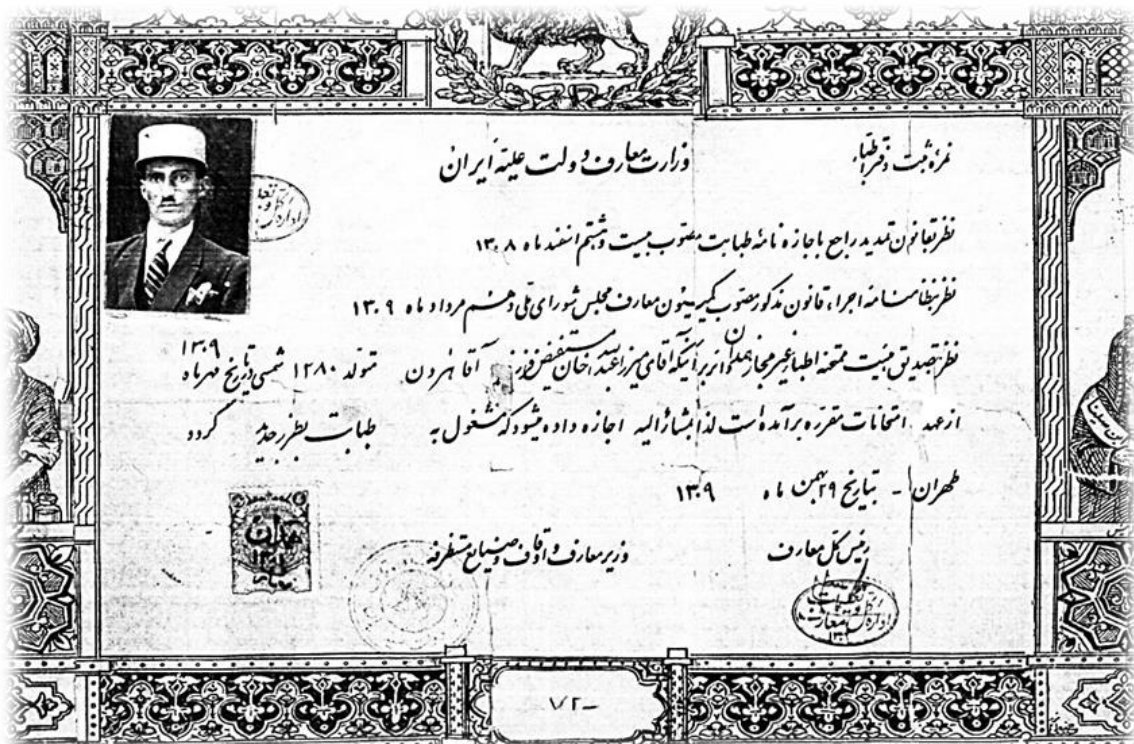 نمره ثبت دفتر اطباء
وزارت معارف دولت علیّه ایران
نظر بقانون تمدید راجع باجازه نامهٔ طبابت مصوّب بیست و هشتم اسفند ماه ۱۳۰۸
نظر بنظامنامه اجراء قانون مذکور مصوّب کمیسیون معارف مجلس شورای ملّی دهم مرداد ماه ۱۳۰۹
نظر بتصدیق هیئت ممتحنه اطباء غیر مجاز همدان از برای اینکه آقای میرزا خان فرزند آقا هرون متولد ۱۲۸۰ شمسی در تاریخ مهر ماه ۱۳۰۹
از عهده امتحانات مقرّره برآمده است لذا بمشارٌالیه اجازه داده میشود که مشغول به طبابت بطرز جدید گردد
طهران - بتاریخ ۲۹ بهمن ماه ۱۳۰۹
رئیس کل معارف
وزیر معارف و اوقاف و صنایع مستظرفه
همدان
۷۲-